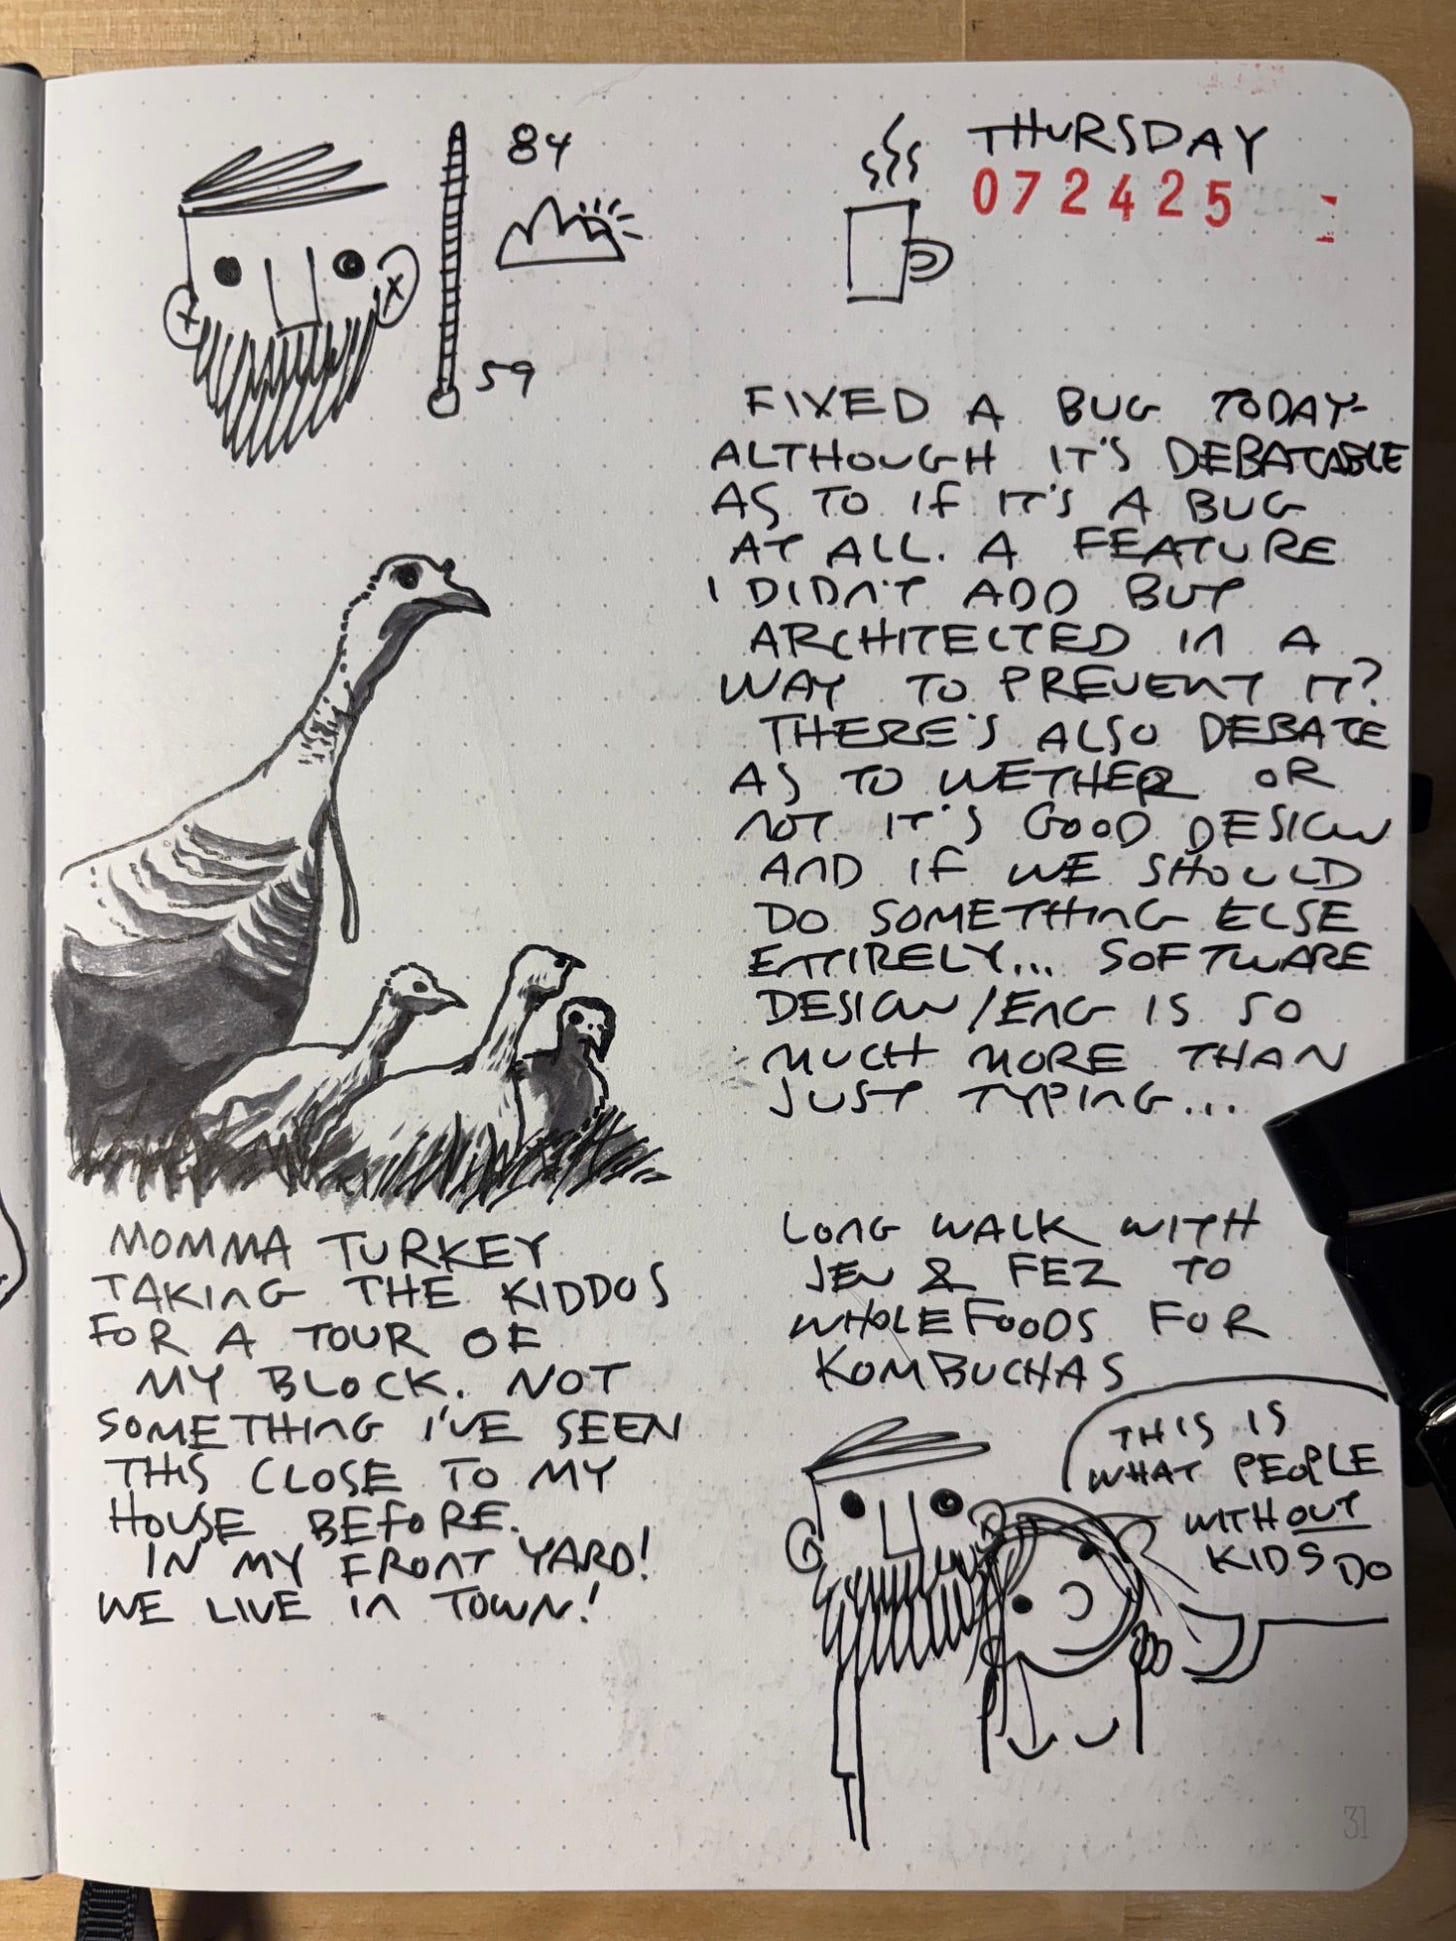 84
59
THURSDAY
072425
FIXED A BUG TODAY-
ALTHOUGH IT'S DEBATABLE
AS TO IF IT'S A BUG
AT ALL. A FEATURE
I DIDN'T ADD BUT
ARCHITECTED IN A
WAY TO PREVENT IT?
THERE'S ALSO DEBATE
AS TO WETHER OR
NOT IT'S GOOD DESIGN
AND IF WE SHOULD
DO SOMETHING ELSE
ENTIRELY... SOFTWARE
DESIGN/ENG IS SO
MUCH MORE THAN
JUST TYPING...
MOMMA TURKEY
TAKING THE KIDDOS
FOR A TOUR OF
MY BLOCK. NOT
SOMETHING I'VE SEEN
THIS CLOSE TO MY
HOUSE BEFORE.
IN MY FRONT YARD!
WE LIVE IN TOWN!
LONG WALK WITH
JEN & FEZ TO
WHOLEFOODS FOR
KOMBUCHAS
THIS IS
WHAT PEOPLE
WITHOUT
KIDS DO
31